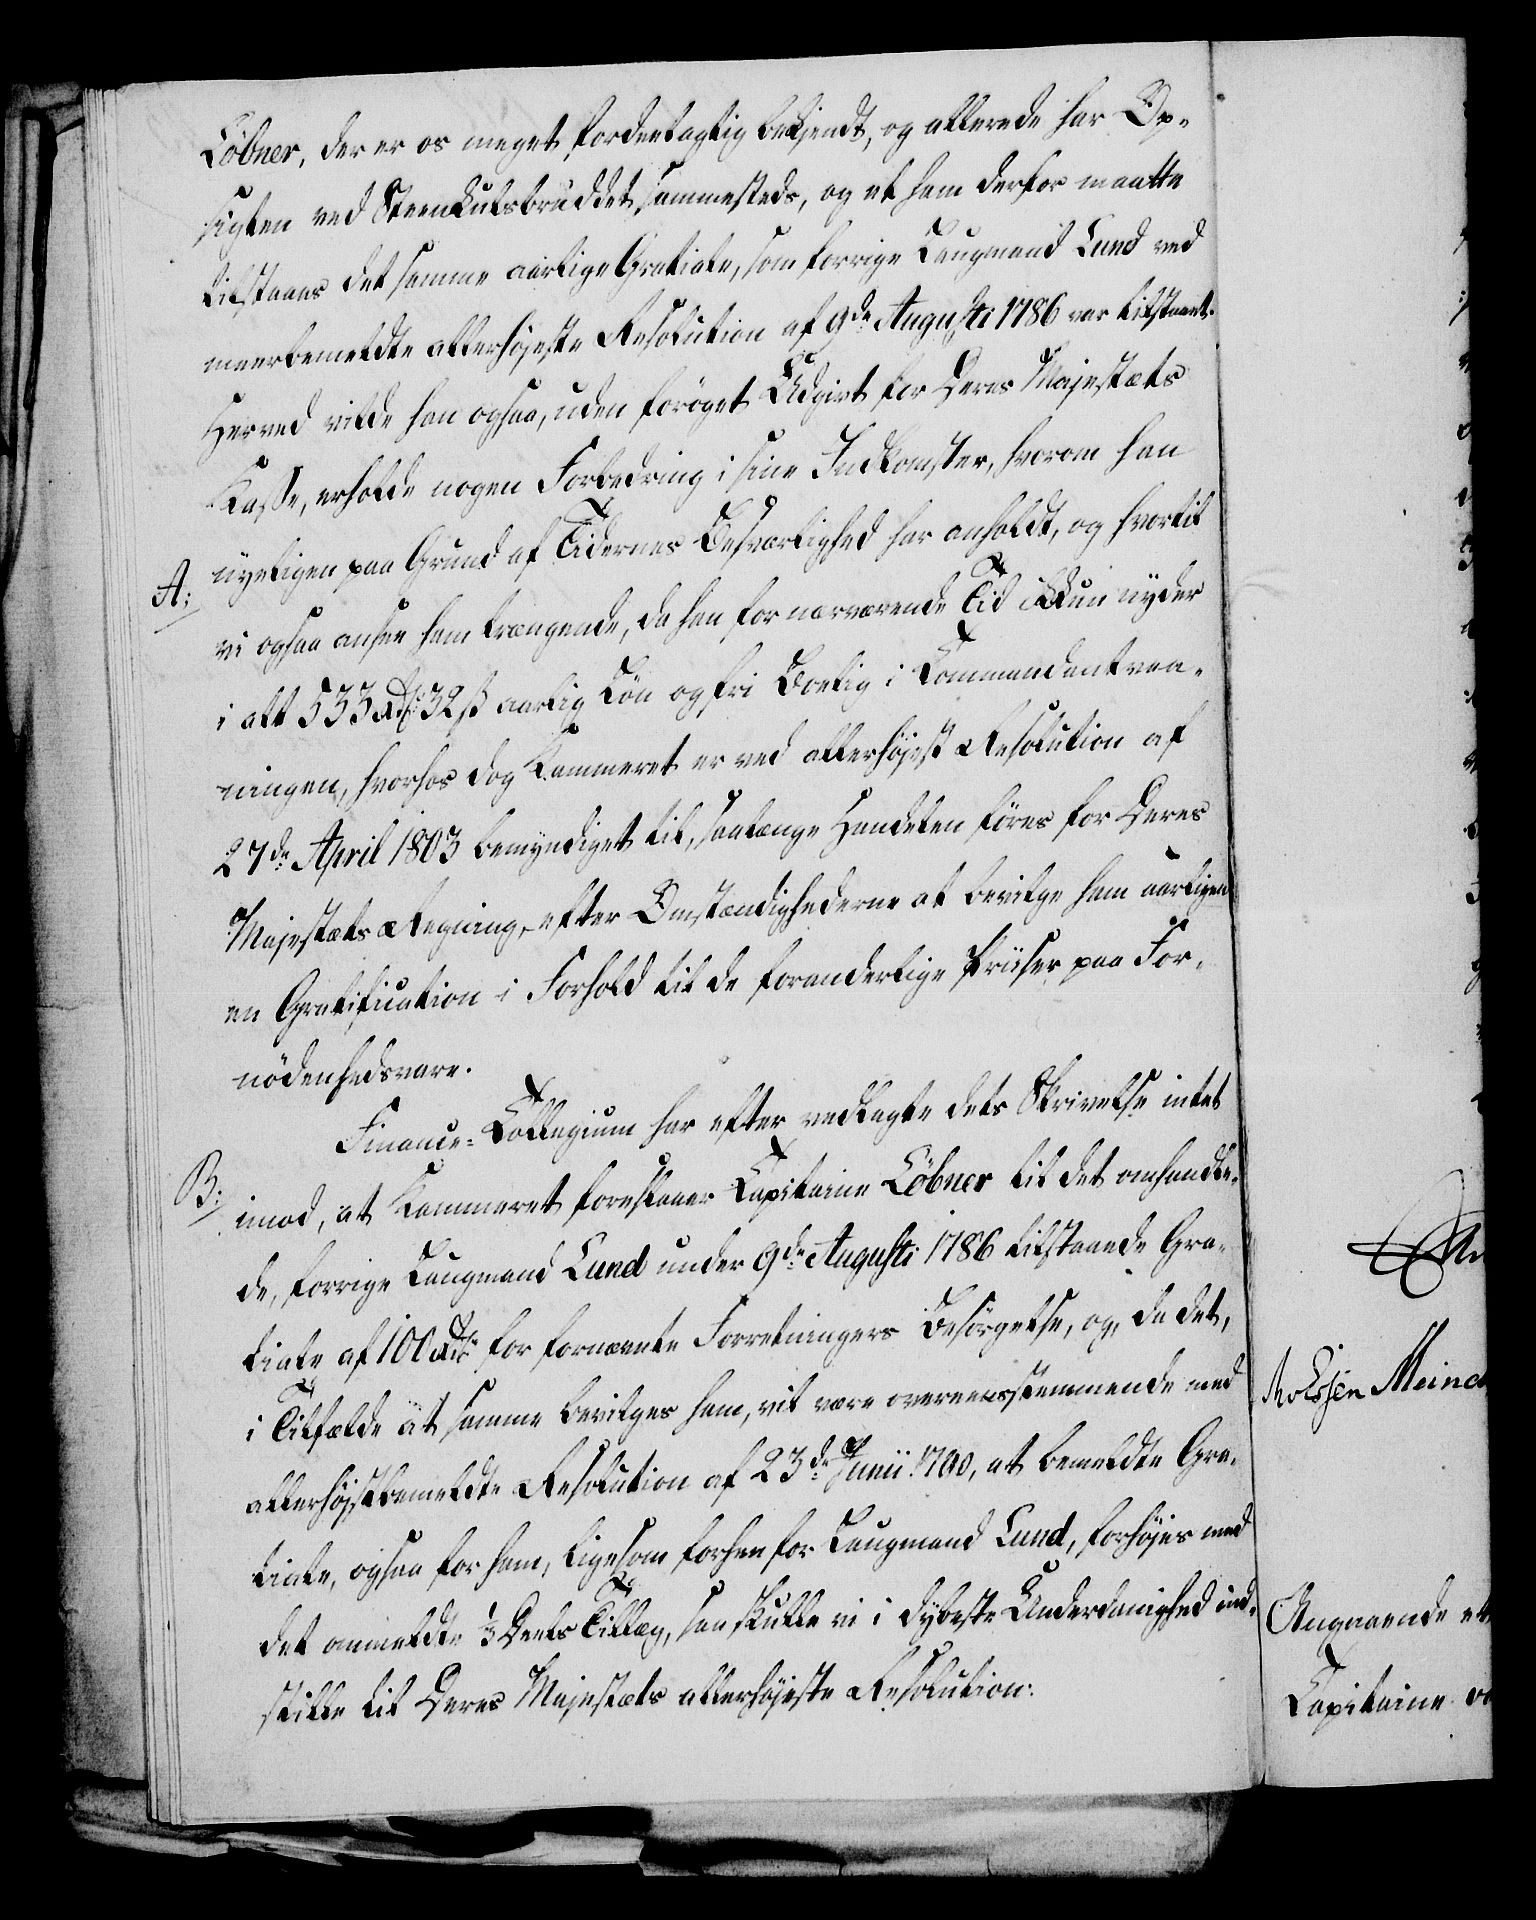 Löbner, der er os meget fordeelagtig bekjendt, og allerede har Op-
sigten ved Steenkulsbruddet sammesteds, og at ham derfor maatte
tilstaaes det samme aarlige Gratiale, som forrige Laugmand Lund ved
meerbemeldte allerhøjeste Resolution af 9de Augusti 1786 var tilstaaet.
Herved vilde han ogsaa, uden forøget Udgivt for Deres Majestæts
Kasse, erholde nogen Forbedring i sine Indkomster, hvorom han
nyeligen paa Grund af Tidernes Besværlighed har anholdt, og hvortil
A:
vi ogsaa ansee ham trængende, da han for nærværende Tid ikkun nyder
i alt 533 Rdr 32 ß aarlig Løn og fri Boelig i Commendantvaa-
ningen, hvorhos dog Kammeret er ved allerhøjest Resolution af
27de April 1803 bemyndiget til, saalænge Handelen føres for Deres
Majestæts Regning, efter Omstændighederne at bevilge ham aarligen
en Gratification i Forhold til de foranderlige Priiser paa For-
nødenhedsvare.
Finance-Collegium har efter vedlagte dets Skrivelse intet
B:
imod, at Kammeret forestaaer Capitaine Löbner til det omhandle-
de, forrige Laugmand Lund under 9de Augusti 1786 tilstaaede Gra-
tiale af 100 Rdr for fornævnte Forretningers Besørgelse, og, da det,
i Tilfælde at samme bevilges ham, vil være overeensstemmende med
allerhøjstbemeldte Resolution af 23de Junii 1790, at bemeldte Gra-
tiale, ogsaa for ham, ligesom forhen for Laugmand Lund, forhøjes med
det anmeldte 1/3 Deels Tillæg, saa skulle vi i dybeste Underdanighed ind-
stille til Deres Majestæts allerhøjeste Resolution:
Angaaende et
Capitaine